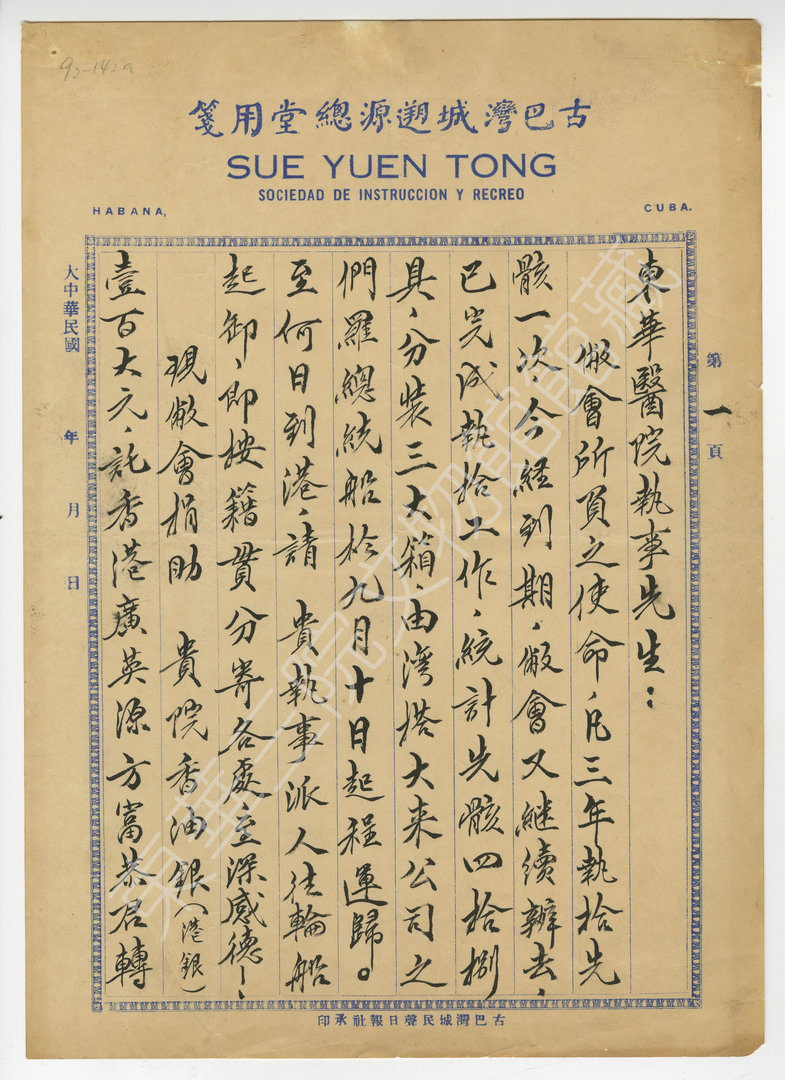 92-142a
古巴灣城遡源總堂用箋
SUE YUEN TONG
SOCIEDAD DE INSTRUCCION Y RECREO
HABANA, CUBA.
第一頁
東華醫院執事先生：
敝會所負之使命，凡三年執拾先
骸一次，今經到期，敝會又繼續辦去，
已完成執拾工作，統計先骸四拾捌
具，分裝三大箱，由湾搭大来公司之
們羅總統船於九月十日起程運歸。
至何日到港，請 貴執事派人往輪船
起卸，即按籍貫分寄各處，至深感德！，
現敝會捐助 貴院香油銀（港銀）
壹百大元，託香港廣英源方富恭君轉
大中華民國 年 月 日
古巴灣城民聲日報社承印
東華三院文物館館藏